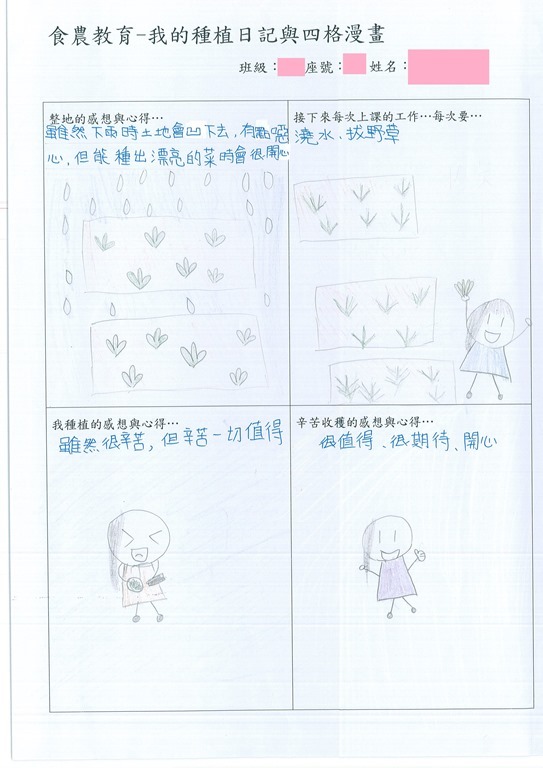 食農教育-我的種植日記與四格漫畫
班級：座號：姓名：
整地的感想與心得…
雖然下雨時土地會凹下去，有點噁
心，但能種出漂亮的菜時會很開心
接下來每次上課的工作…每次要…
澆水、拔野草
我種植的感想與心得…
雖然很辛苦，但辛苦一切值得
辛苦收獲的感想與心得…
很值得、很期待、開心